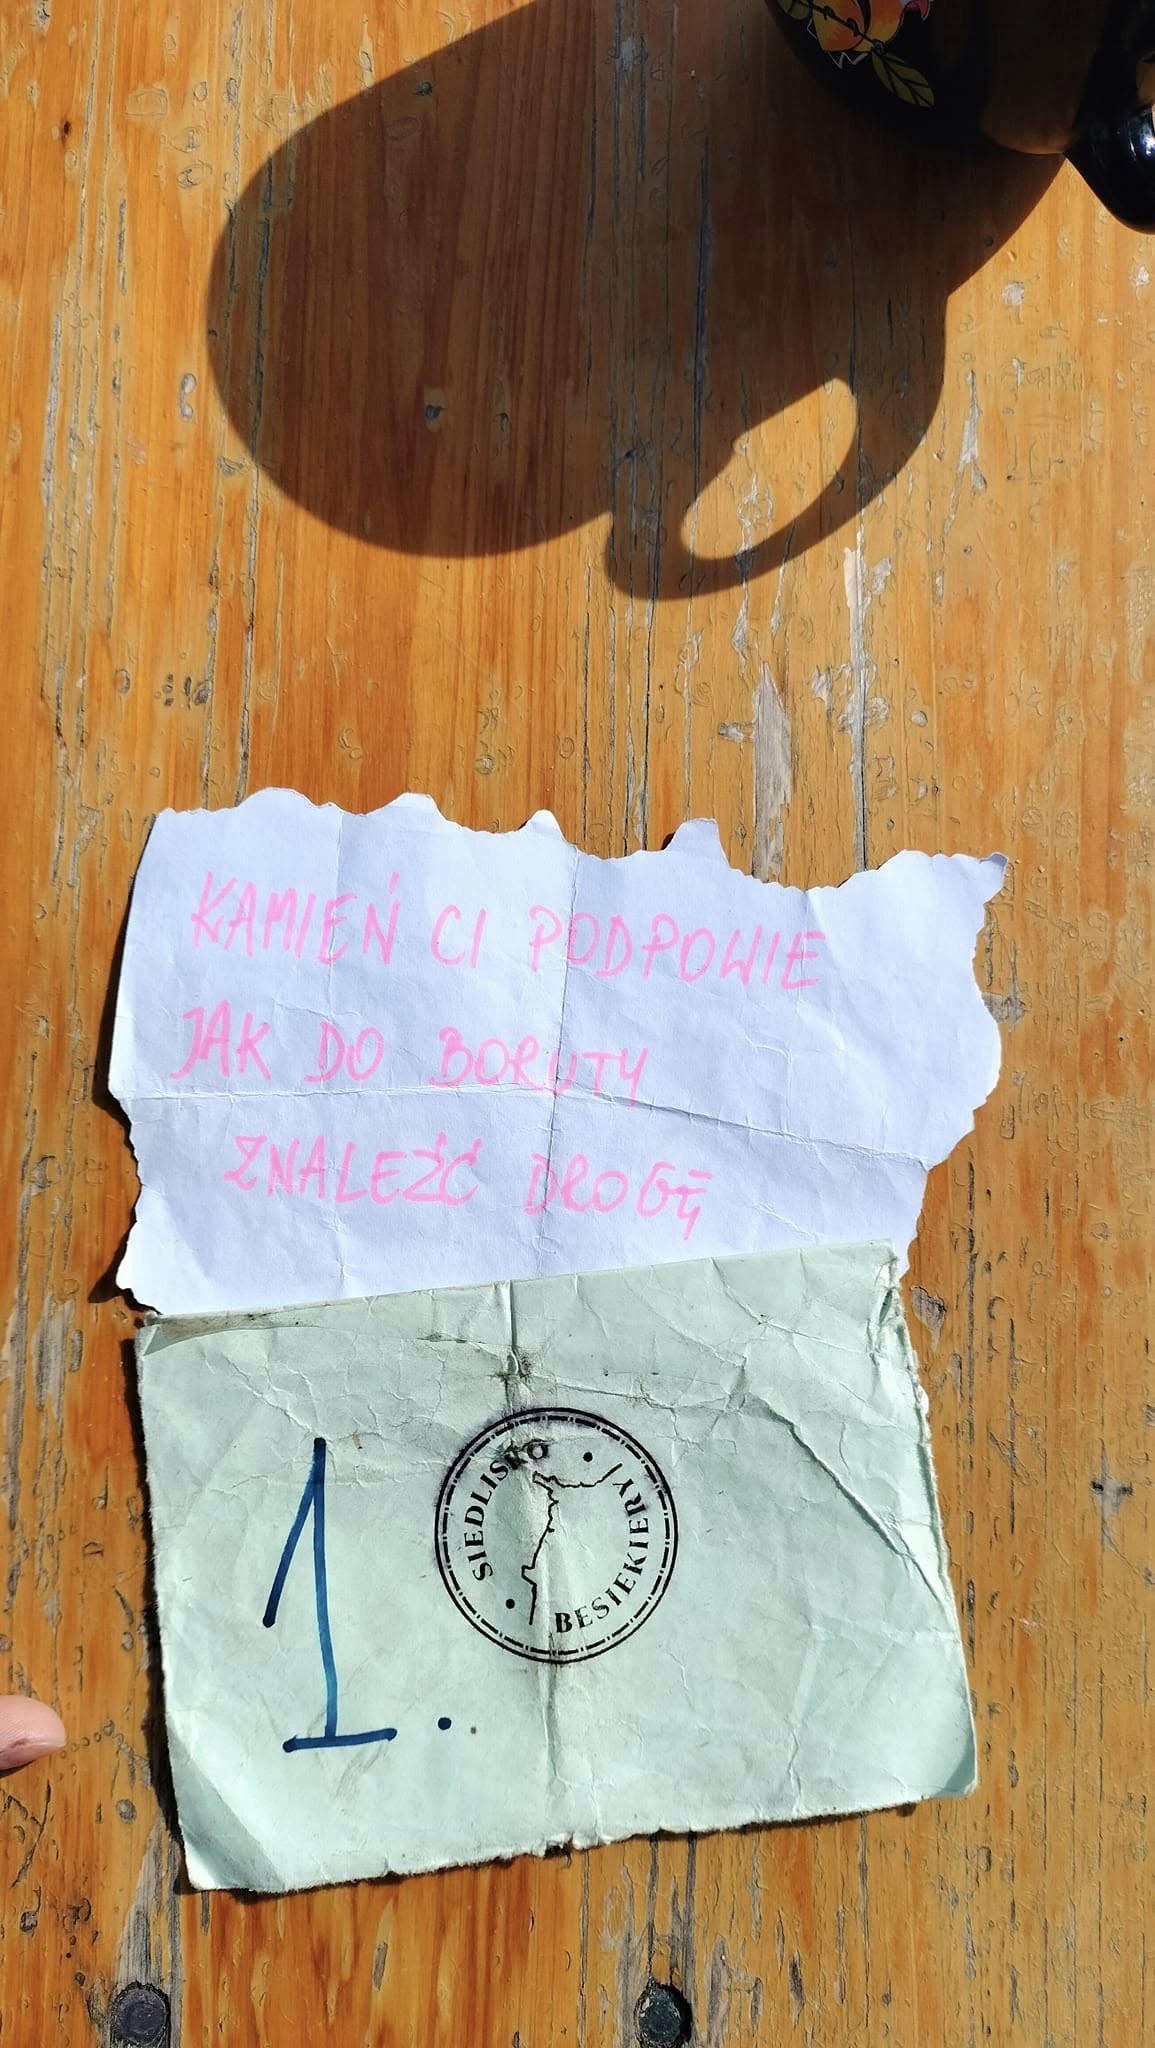 KAMIEŃ CI PODPOWIE
JAK DO BORUTY
ZNALEŹĆ DROGĘ
1.
SIEDLISKO
BESIEKIERY